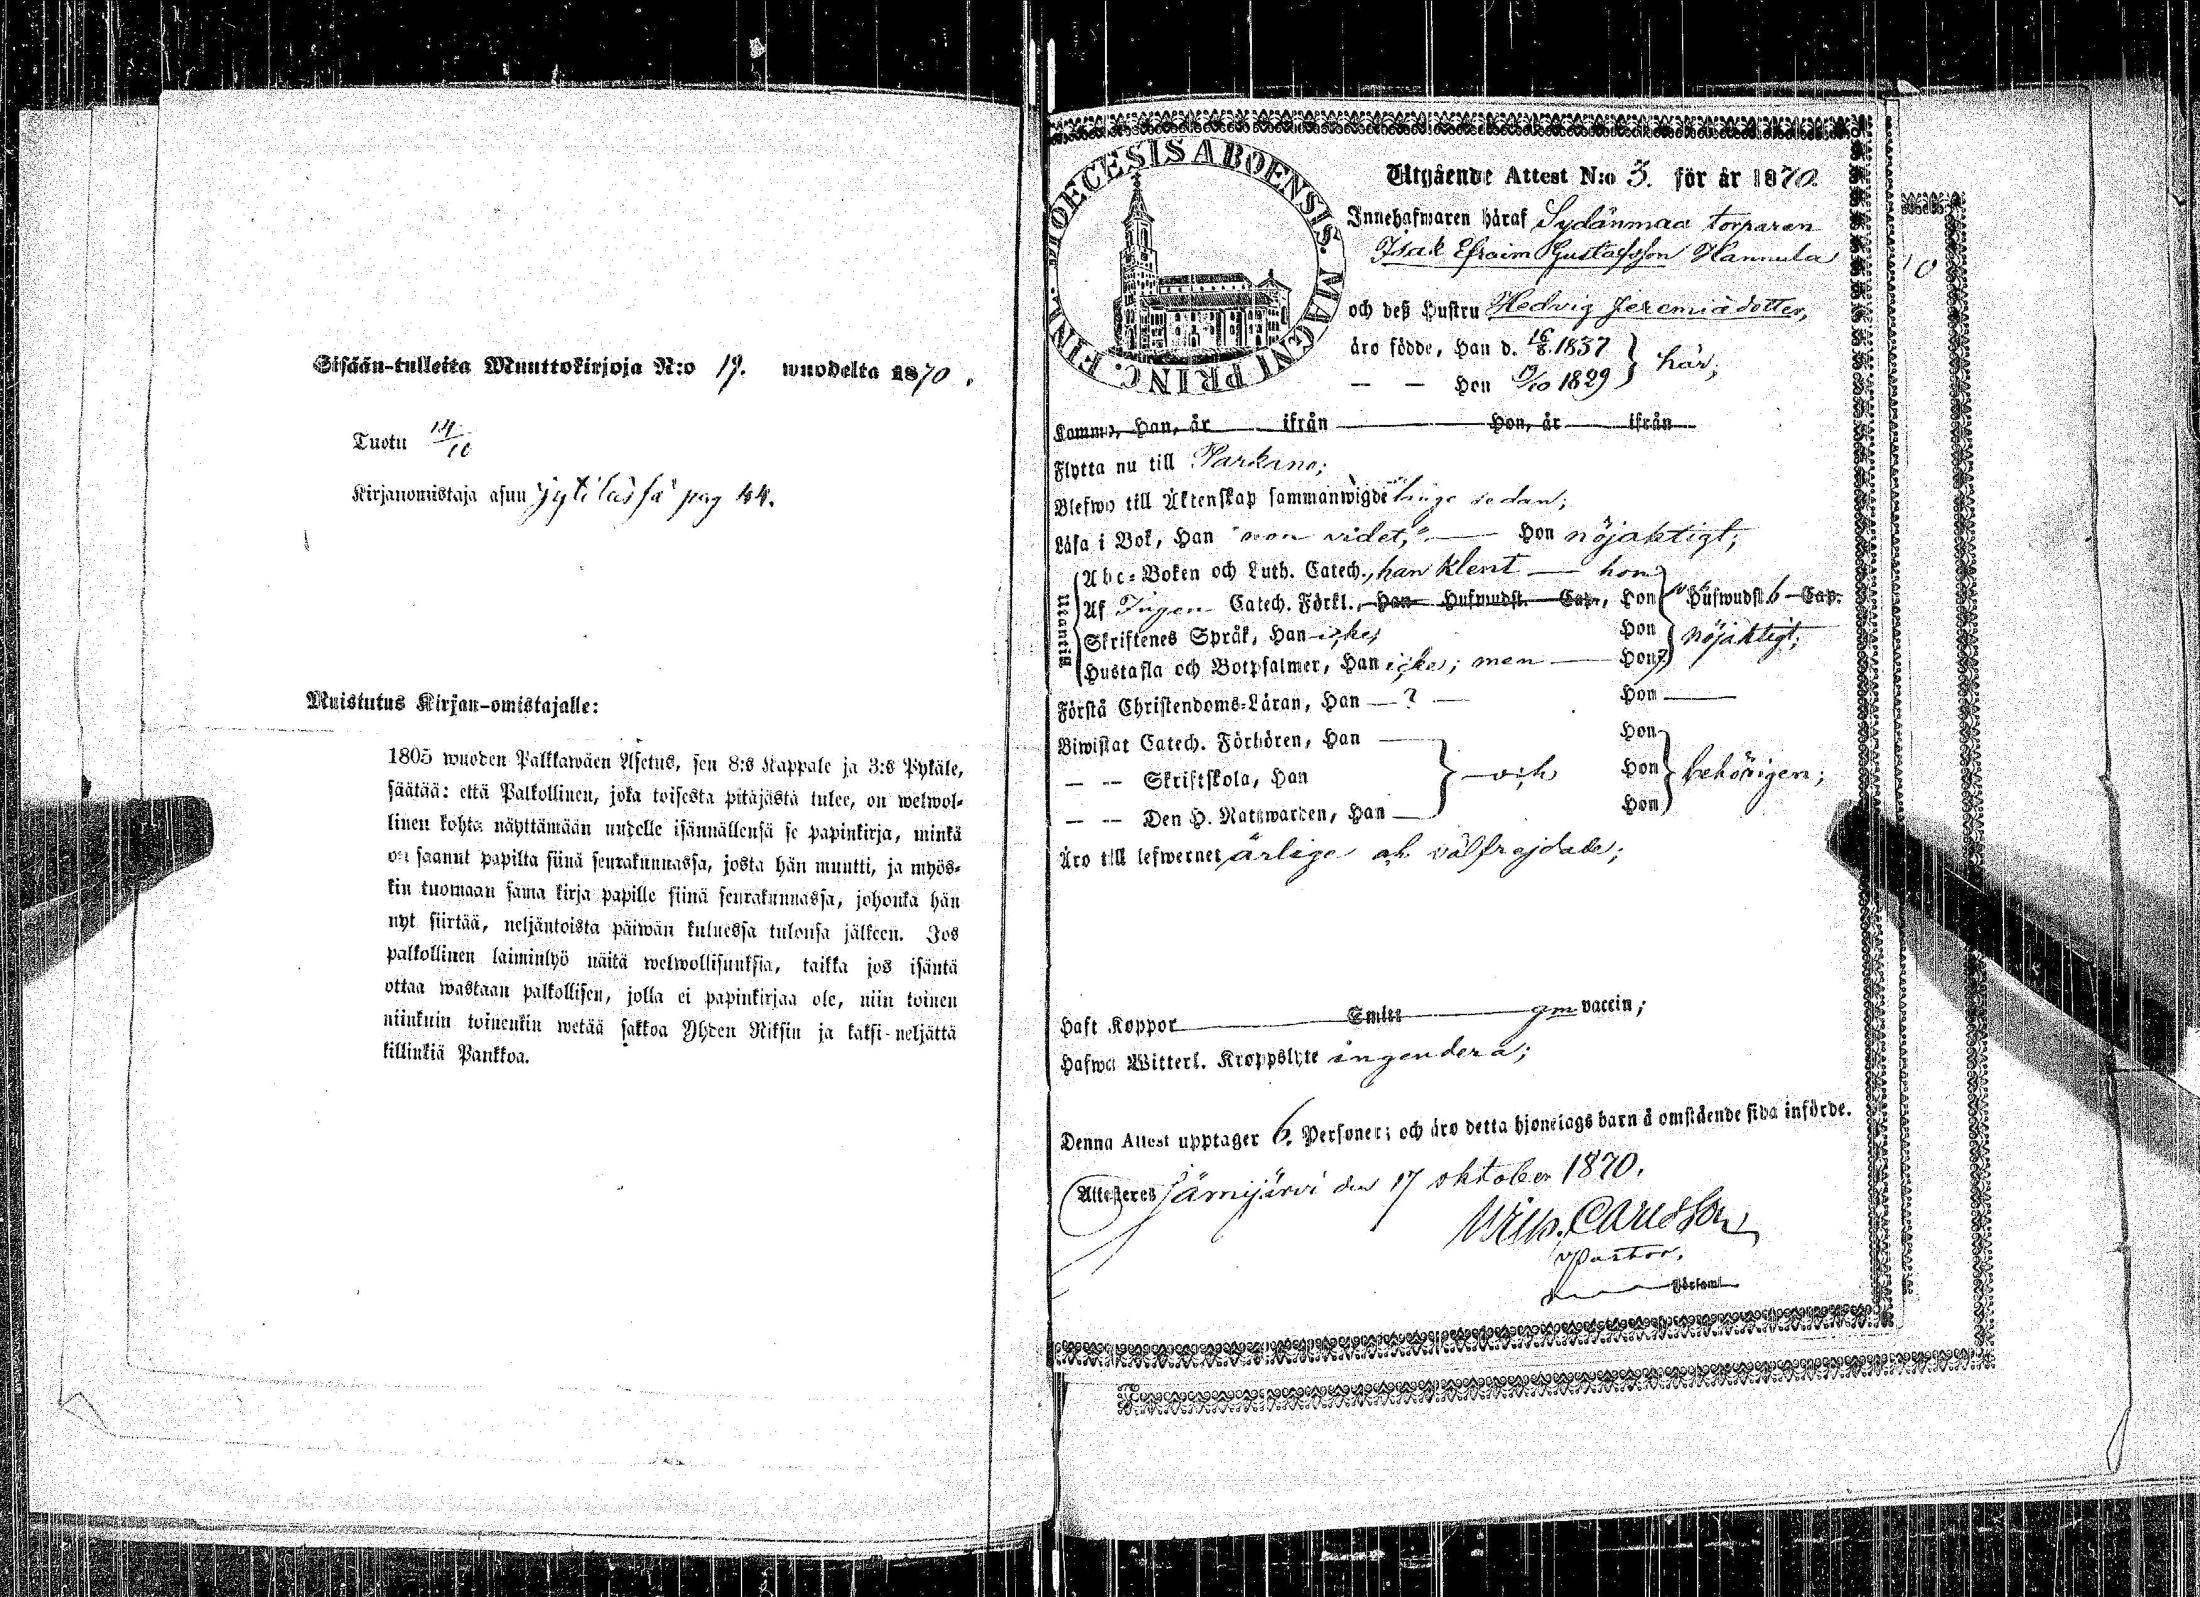 Sisään-tulleita Muuttokirjoja N:o 19. wuodelta 1870.
Tuotu /10
Kirjanomistaja asuu Jyllilässä pag 44.
Muistutus Kirjan-omistajalle:
1805 wuoden Palkkawäen Asetus, sen 8:s Kappale ja 3:s Pykäle,
säätää: että Palkollinen, joka toisesta pitäjästä tulee, on welwol-
linen kohta näyttämään uudelle isännällensä se papinkirja, minkä
on saanut papilta siinä seurakunnassa, josta hän muutti, ja myös-
kin tuomaan sama kirja papille siinä seurakunnassa, johonka hän
nyt siirtää, neljäntoista päiwän kuluessa tulonsa jälkeen. Jos
palkollinen laiminlyö näitä welwollisuuksia, taikka jos isäntä
ottaa wastaan palkollisen, jolla ei papinkirjaa ole, niin toinen
niinkuin toinenkin wetää sakkoa Yhden Riksin ja kaksi-neljättä
killinkiä Pankkoa.
DIOECESIS ABOENSIS. MAGNI PRINC. FINL.
Utgående Attest N:o 3. för år 1870.
Innehafwaren häraf Sydänmaa torparen
Isak Efraim Gustafsson Hannula
och deß Hustru Hedvig Jeremiädotter,
äro födde, Han d. 16/8 1837 } här;
— — Hon /10 1829
Kommo, Han, år ifrån Hon, år ifrån
Flytta nu till Parkano;
Blefwo till Äktenskap sammanwigde länge sedan;
Läsa i Bok, Han "non videt," — Hon nöjaktigt;
Utantill
Abc-Boken och Luth. Catech., han klent — hon
Af Ingen Catech. Förkl., Han Hufwudst. Cap., Hon Hufwudst. 6 Cap.
Skriftenes Språk, Han icke; Hon nöjaktigt;
Hustafla och Botpsalmer, Han icke; men — Hon
Förstå Christendoms-Läran, Han — ? — Hon —
Biwistat Catech. Förhören, Han — Hon
— — Skriftskola, Han — och Hon behörigen;
— — Den H. Nattwarden, Han — Hon
Äro till lefwernet ärlige och välfrejdade;
Haft Koppor Smitt gm vaccin;
Hafwa Witterl. Kroppslyte ingendera;
Denna Attest upptager 6. Personer; och äro detta hjonelags barn å omstående sida införde.
Attesteres Jämijärvi den 17 oktober 1870.
Wilh. Carlsson
Pastor.
Församl.
10